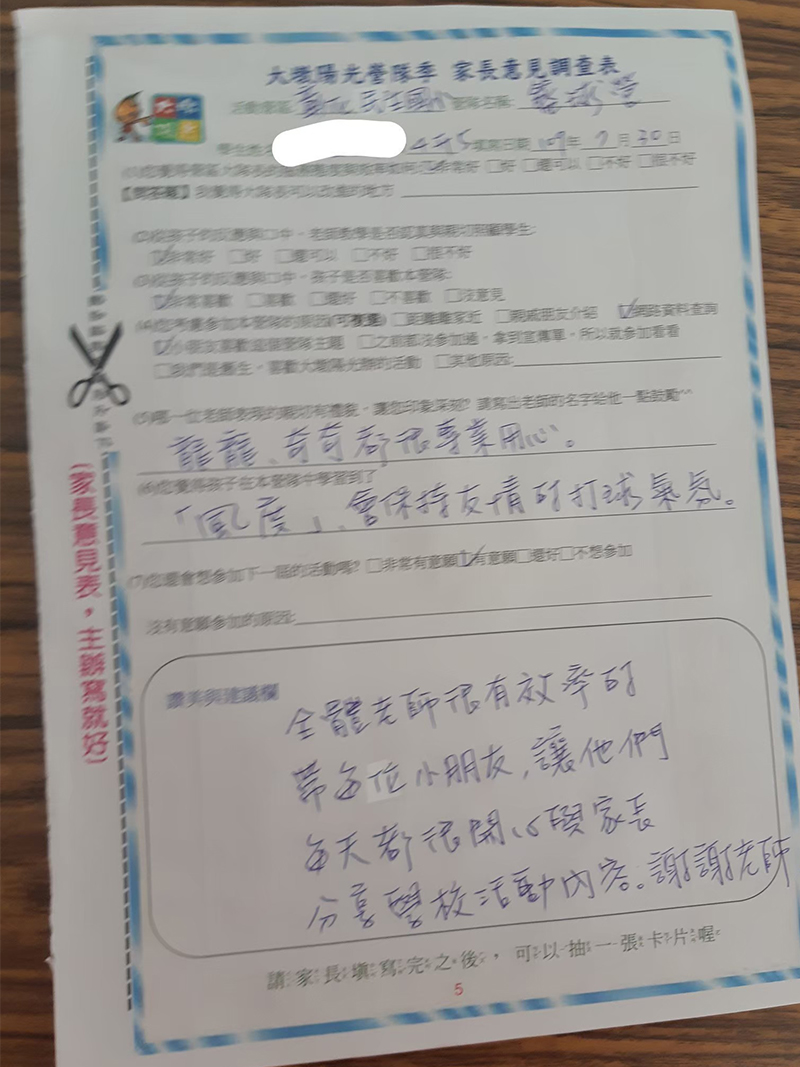 大墩陽光營隊季 家長意見調查表
活動營區 民生國小 營隊名稱:
學生姓名 填寫日期 109年 7月30日
□非常好 □好 □還可以 □不好 □很不好
【問答題】我覺得大隊長可以改進的地方
(2)從孩子的反應與口中,老師教學是否認真與親切照顧學生:
☑非常好 □好 □還可以 □不好 □很不好
(3)從孩子的反應與口中,孩子是否喜歡本營隊:
☑非常喜歡 □喜歡 □還好 □不喜歡 □沒意見
(4)您考慮參加本營隊的原因(可複選) □距離離家近 □親戚朋友介紹 ☑網路資料查詢
☑小朋友喜歡這個營隊主題 □之前都沒參加過,拿到宣傳單,所以就參加看看
□我們是舊生,喜歡大墩陽光辦的活動 □其他原因:
(5)哪一位老師表現的親切有禮貌,讓您印象深刻?請寫出老師的名字給他一點鼓勵^^
龍龍、奇奇都很專業用心。
(6)您覺得孩子在本營隊中學習到了
「風度」、會保持友情的打球氣氛。
(7)您還會想參加下一屆的活動嗎? □非常有意願☑有意願□還好□不想參加
沒有意願參加的原因:
讚美與建議欄
全體老師很有效率的
帶每位小朋友,讓他們
每天都很開心與家長
分享學校活動內容。謝謝老師
請家長填寫完之後,可以抽一張卡片喔
5
(家長意見表,主辦寫就好)